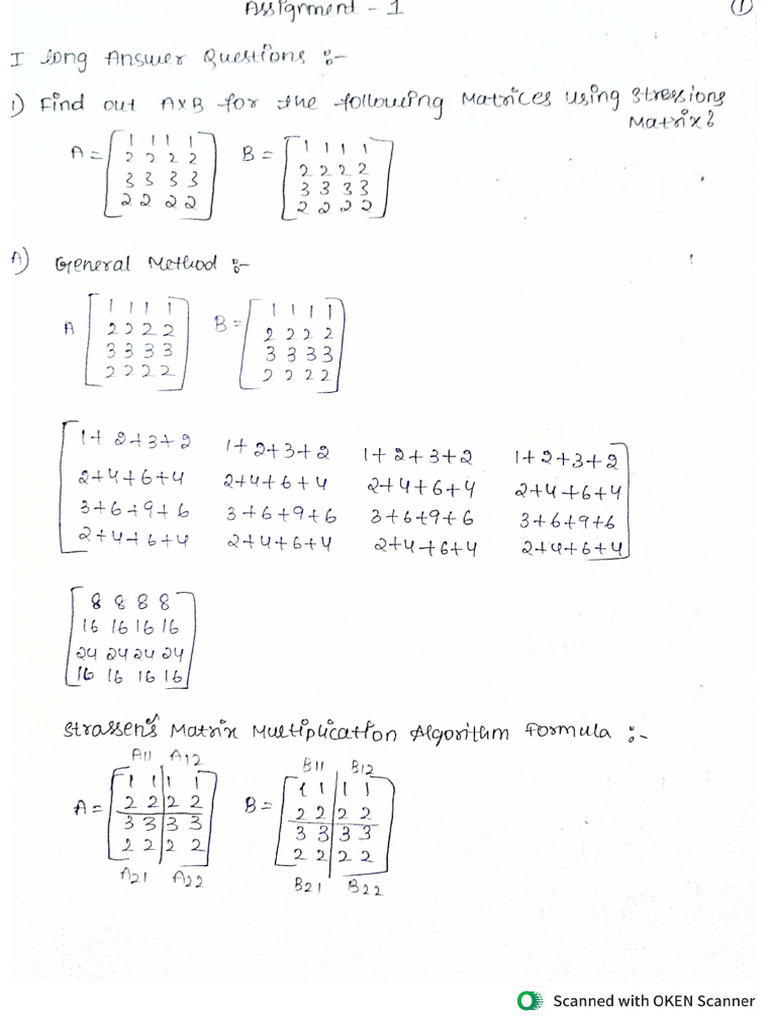 Assignment - 1
1
I long Answer Questions :-
1) Find out A×B for the following Matrices using Stressions
Matrix?
A = [1 1 1 1
2 2 2 2
3 3 3 3
2 2 2 2]
B = [1 1 1 1
2 2 2 2
3 3 3 3
2 2 2 2]
A) General Method :-
A [1 1 1 1
2 2 2 2
3 3 3 3
2 2 2 2]
B = [1 1 1 1
2 2 2 2
3 3 3 3
2 2 2 2]
[1+2+3+2 1+2+3+2 1+2+3+2 1+2+3+2
2+4+6+4 2+4+6+4 2+4+6+4 2+4+6+4
3+6+9+6 3+6+9+6 3+6+9+6 3+6+9+6
2+4+6+4 2+4+6+4 2+4+6+4 2+4+6+4]
[8 8 8 8
16 16 16 16
24 24 24 24
16 16 16 16]
Strassen's Matrix Multiplication Algorithm Formula :-
A11 A12
A = [1 1 1 1
2 2 2 2
3 3 3 3
2 2 2 2]
A21 A22
B11 B12
B = [1 1 1 1
2 2 2 2
3 3 3 3
2 2 2 2]
B21 B22
Scanned with OKEN Scanner